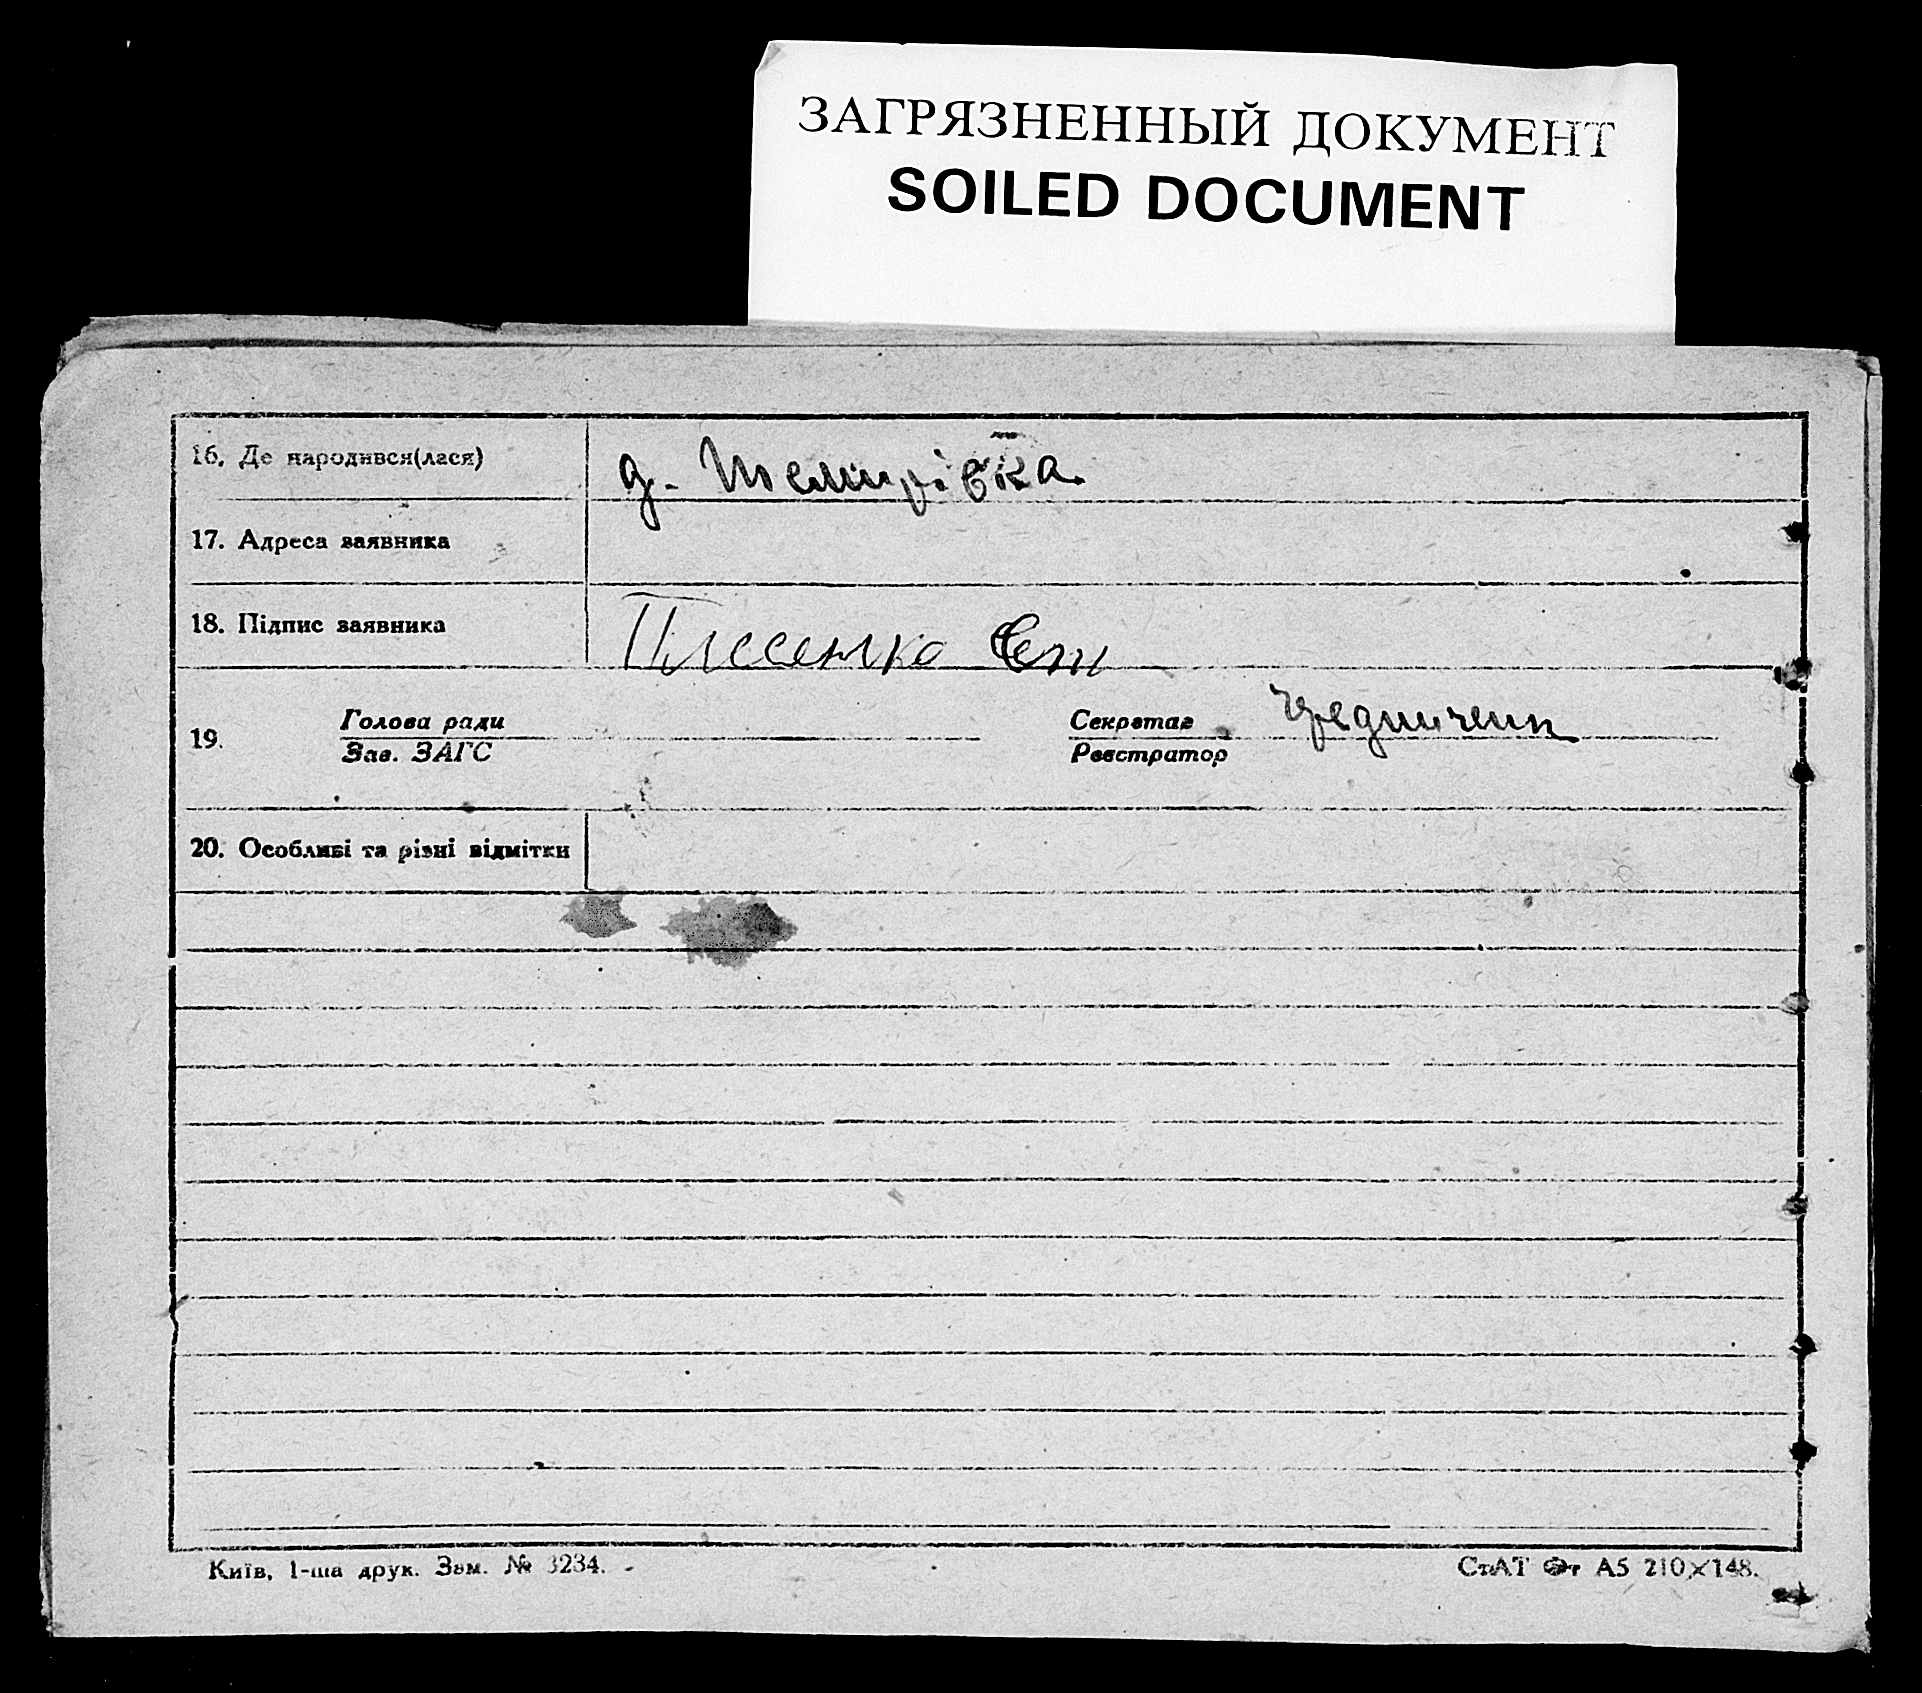 ЗАГРЯЗНЕННЫЙ ДОКУМЕНТ
SOILED DOCUMENT
16. Де народився(лася)
17. Адреса заявника
18. Підпис заявника
19. Голова ради
Зав. ЗАГС
Секретар
Реєстратор
20. Особливі та різні відмітки
Київ, 1-ша друк. Зам. № 3234.
СтАТ Фт А5 210×148.